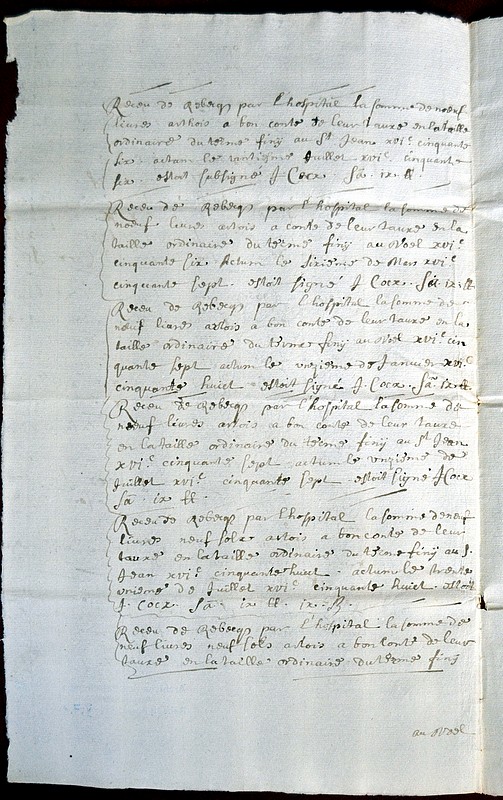 Receu de Rebecq par l'hospital la somme de noeuf
livres arthois a bon conte de leur taxe en la taille
ordinaire du terme finy au St Jean xvi.c cinquante
six. actum le Juillet xvi.c cinquante
six. estoit subsigné J. Cocx. Sa. ix ll
Receu de Rebecq par l'hospital la somme de
noeuf livres artois a conte de leur taxe en la
taille ordinaire du terme finy au Noel xvi.c
cinquante six. Actum le sixieme de Mars xvi.c
cinquante sept. estoit signé J. Cocx. Sa ix ll
Receu de Rebecq par l'hospital la somme de
neuf livres artois a bon conte de leur taxe en la
taille ordinaire du terme finy au Noel xvi.c cin
quante sept. actum le unzieme de Janvier xvi.c
cinquante huict. estoit signé J. Cocx. Sa ix ll
Receu de Rebecq par l'hospital la somme de
noeuf livres artois a bon conte de leur taxe
en la taille ordinaire du terme finy au St Jean
xvi.c cinquante sept actum le unzieme de
Juillet xvi.c cinquante sept estoit signé J Cocx
Sa. ix ll.
Receu de Rebecq par l'hospital la somme de neuf
livres neuf solz artois a bon conte de leur
taxe en la taille ordinaire du terme finy au S.
Jean xvi.c cinquante huict. actum le trente
unieme de Juillet xvi.c cinquante huict. estoit
J. Cocx. Sa ix ll. ix. s.
Receu de Rebecq par l'hospital la somme de
neuf livres neuf solz artois a bon conte de leur
taxe en la taille ordinaire du terme finy
au Noel